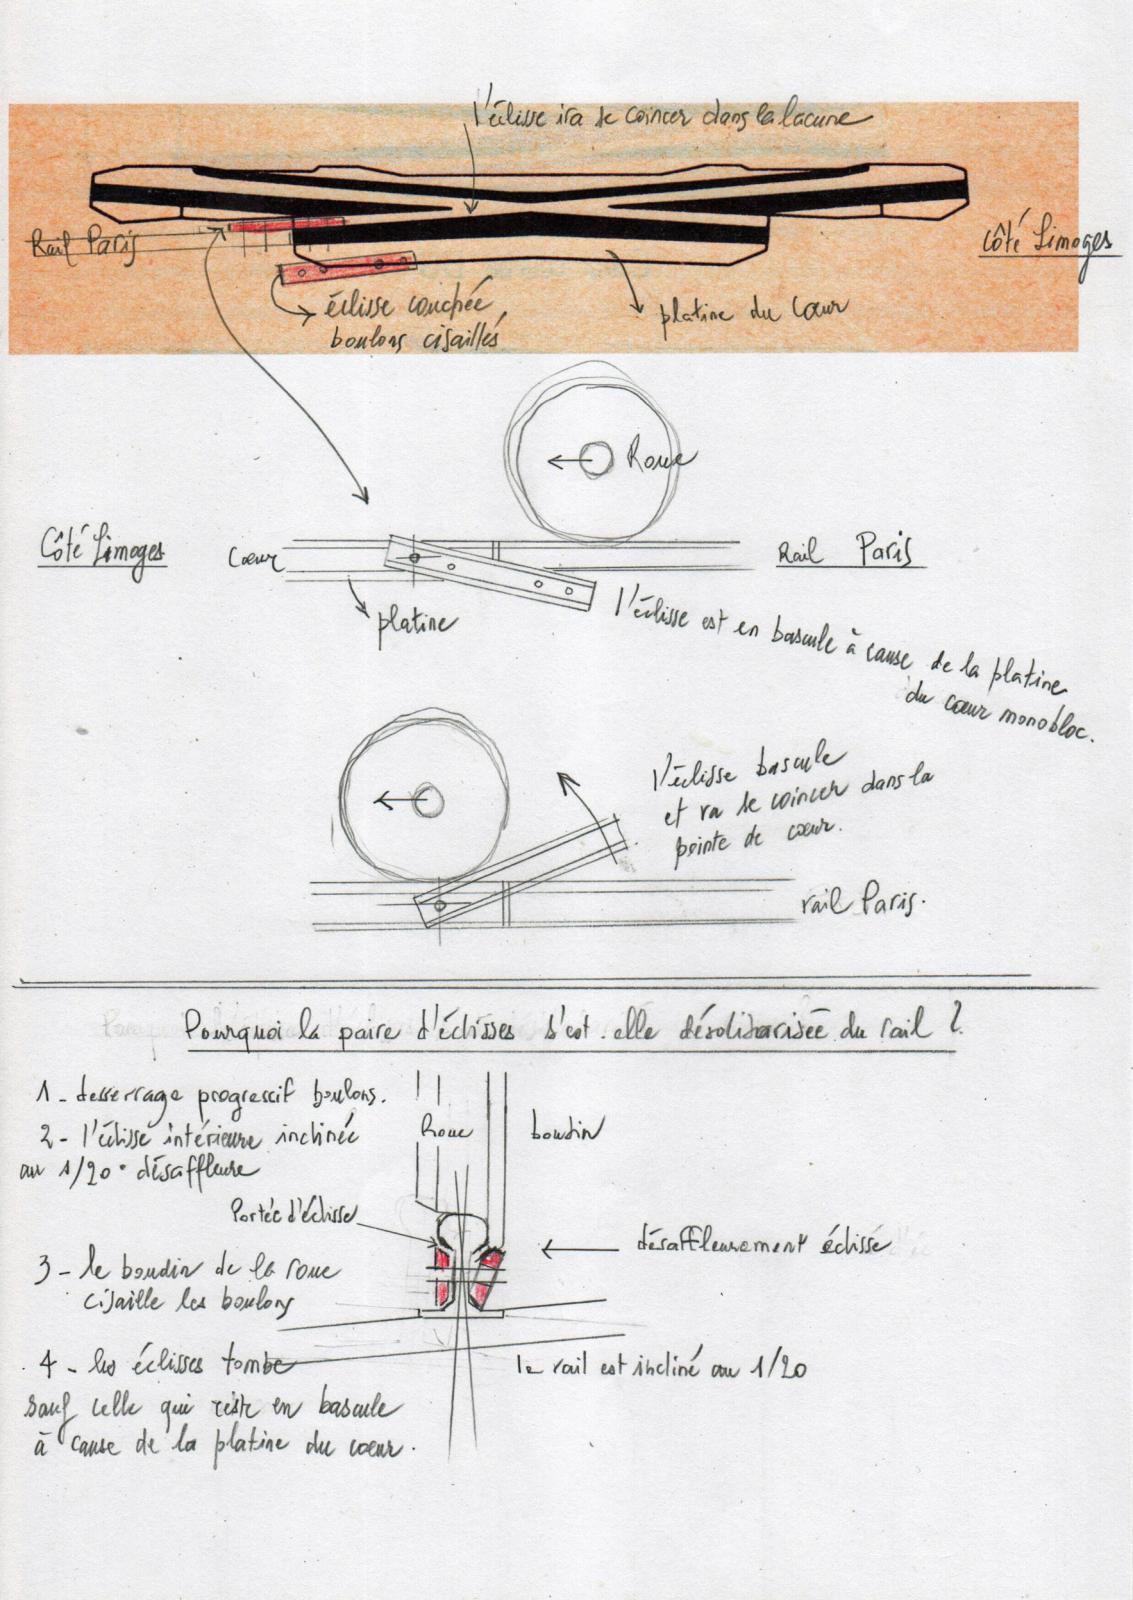 l'éclisse ira se coincer dans la lacune
Rail Paris
Côté Limoges
éclisse couchée
boulons cisaillés
platine du cœur
Roue
Côté Limoges
Cœur
Rail Paris
platine
l'éclisse est en bascule à cause de la platine
du cœur monobloc.
l'éclisse bascule
et va se coincer dans la
pointe de cœur.
rail Paris.
Pourquoi la paire d'éclisses s'est-elle désolidarisée du rail ?
1 - desserrage progressif boulons.
2 - l'éclisse intérieure inclinée
au 1/20° désaffleure
Roue
boudin
Portée d'éclisse
désaffleurement éclisse
3 - le boudin de la roue
cisaille les boulons
4 - les éclisses tombe
sauf celle qui reste en bascule
à cause de la platine du cœur.
le rail est incliné au 1/20